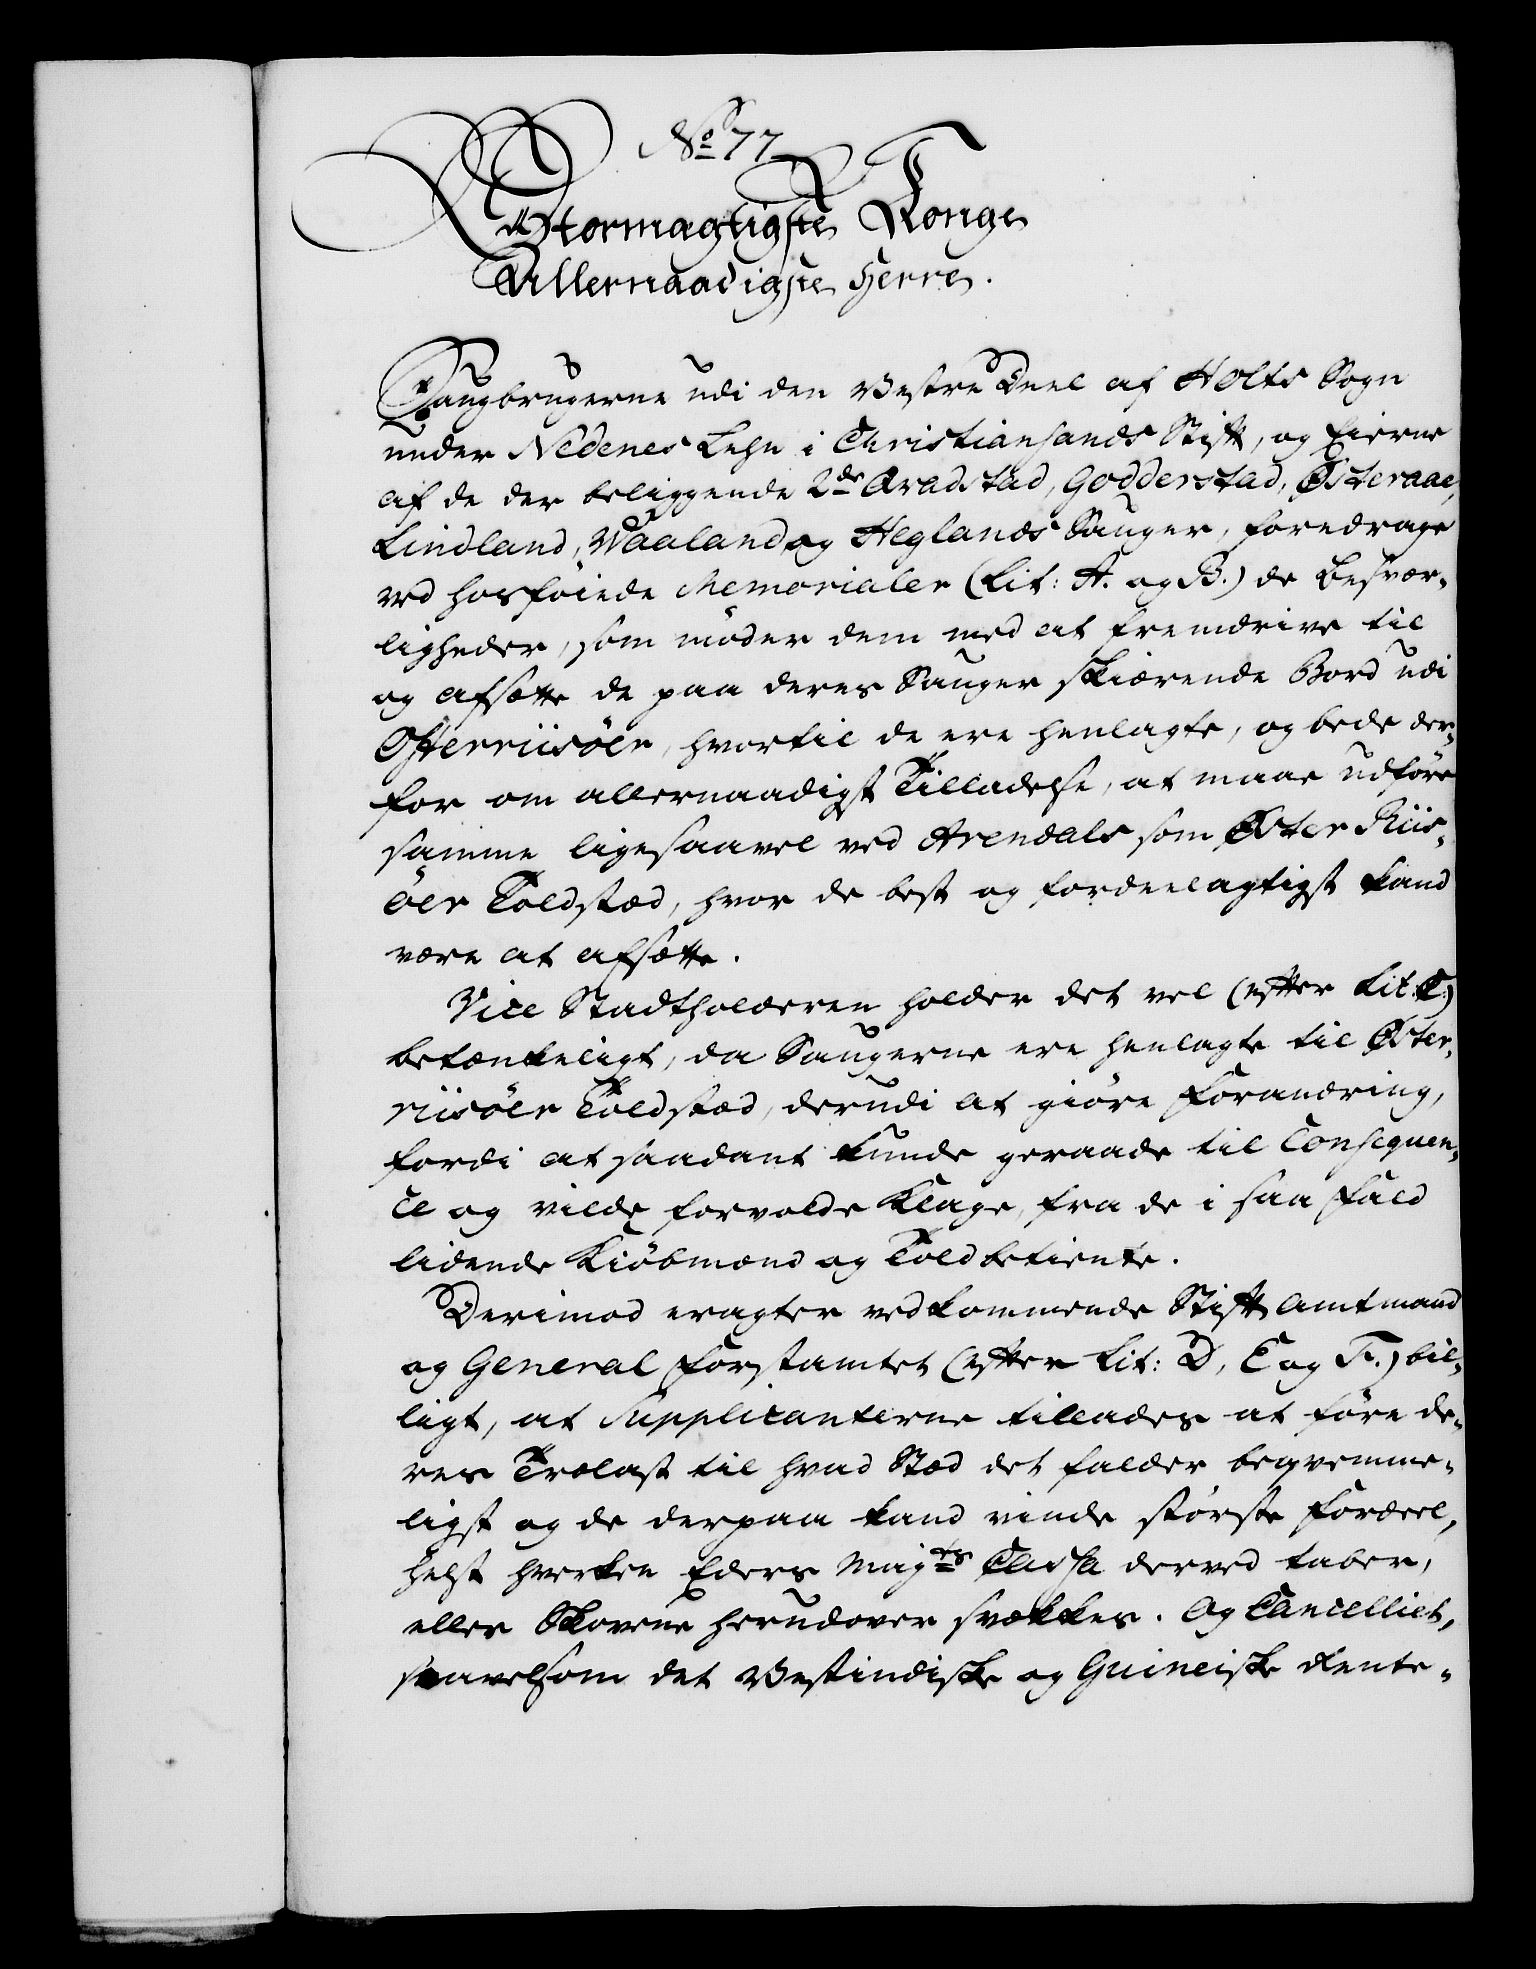 No 77
Stormægtigste Konge
Allernaadigste Herre.
Saugbrugerne udi den Vestre Deel af Holts Sogn
under Nedenes Lehn i Christiansands Stift, og Eierne
af de der beliggende 2de Aradstad, Godderstad, Østeraae,
Lindland, Waaland og Heglands Sauger, foredrage
ved hosføiede Memorialer (Lit: A. og B.) de Besvær-
ligheder, som møder dem med at fremdrive til
og afsætte de paa deres Sauger skiærende Bord udi
Østerriisöer, hvortil de ere henlagte, og bede der-
for om allernaadigst Tilladelse, at maae udføre
samme ligesaavel ved Arendals som Øster Riis-
öer Toldstæd, hvor de best og fordeelagtigst kand
være at afsætte.
Vice Stadtholderen holder det vel (efter Lit: C.)
betænkeligt, da Saugerne ere henlagte til Øster-
riisöer Toldstæd, derudi at giøre Forandring,
fordi at saadant kunde geraade til Consequen-
ce og vilde forvolde Klage, fra de i saa Fald
lidende Kiøbmænd og Toldbetiente.
Derimod eragter vedkommende Stift Amtmand
og General Forstamtet (efter Lit: D, E og F.) bil-
ligt, at Supplicanterne tillades at føre de-
res Trælast til hvad Stæd det falder beqvemme-
ligst og de derpaa kand vinde største Fordeel,
helst hverken Eders Mayts Cassa derved taber,
eller Skovene herudover svækkes. Og Cancelliet,
saavelsom det Vestindiske og Guineiske Rente-